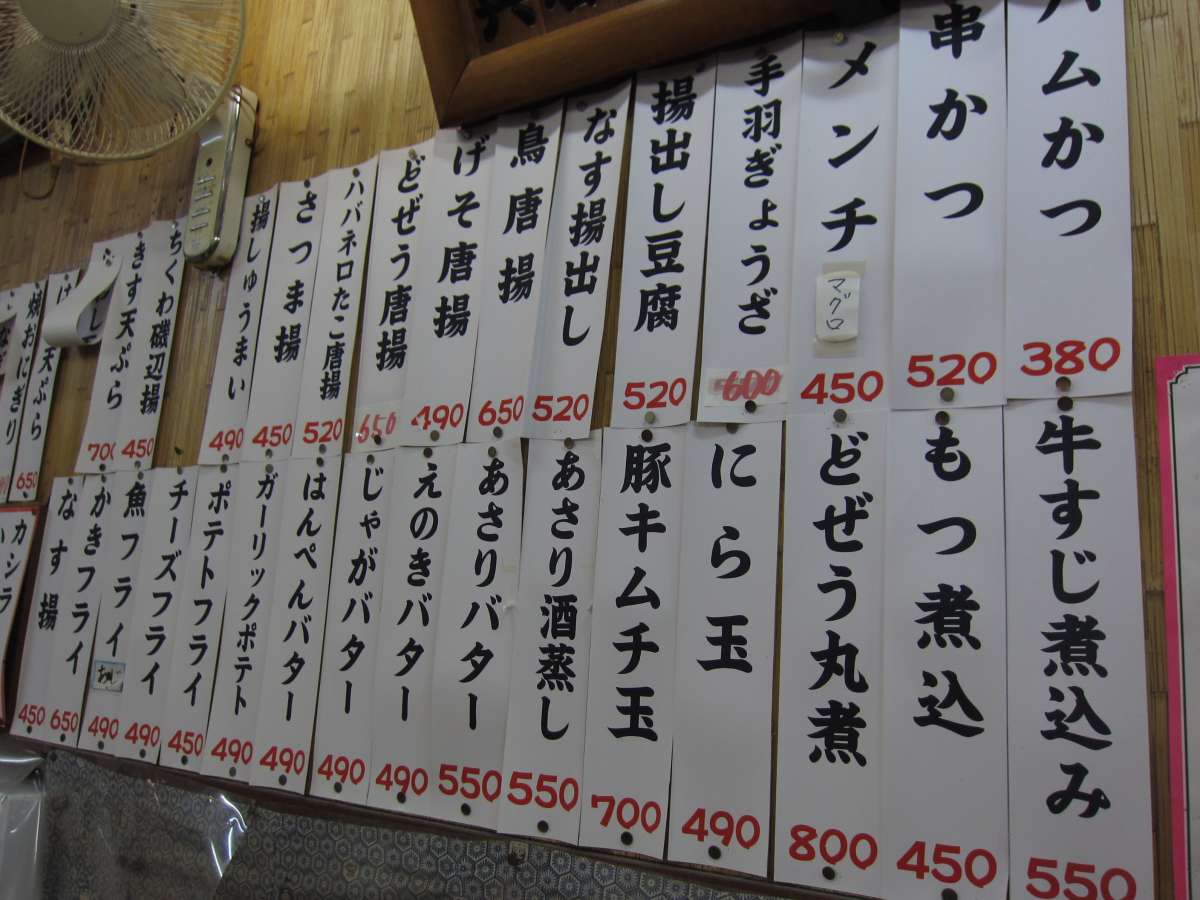 ハムかつ
380
串かつ
520
メンチ
マグロ
450
手羽ぎょうざ
600
揚出し豆腐
520
なす揚出し
520
鳥唐揚
650
げそ唐揚
490
どぜう唐揚
650
ハバネロたこ唐揚
520
さつま揚
450
揚しゅうまい
490
ちくわ磯辺揚
450
きす天ぷら
700
天ぷら
650
焼おにぎり
牛すじ煮込み
550
もつ煮込
450
どぜう丸煮
800
にら玉
490
豚キムチ玉
700
あさり酒蒸し
550
あさりバター
550
えのきバター
490
じゃがバター
490
はんぺんバター
490
ガーリックポテト
490
ポテトフライ
450
チーズフライ
490
魚フライ
490
かきフライ
650
なす揚
450
カシラ